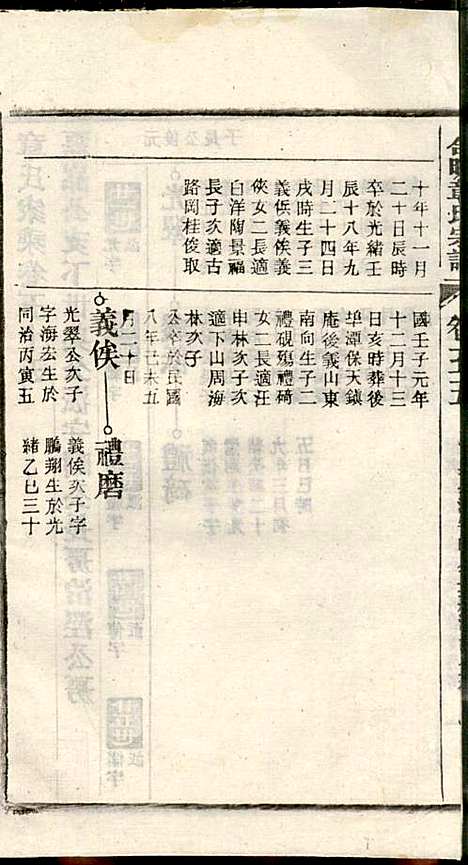 十年十一月
二十日辰時
卒於光緒壬
辰十八年九
月二十四日
戌時生子三
義倀義俟義
俠女二長適
白洋陶景福
長子次適古
路岡桂俊取
國壬子元年
十二月十三
日亥時葬後
埠潭保大鎮
庵後義山東
南向生二
禮硯殤禮碕
女二長適汪
申林次子次
適下山周海
林次子
公卒於民國
八年己未五
月二十日
義俟
禮磨
光翠公次子
字海宏生於
同治丙寅五
義俟次子字
鵬翔生於光
緒乙巳三十